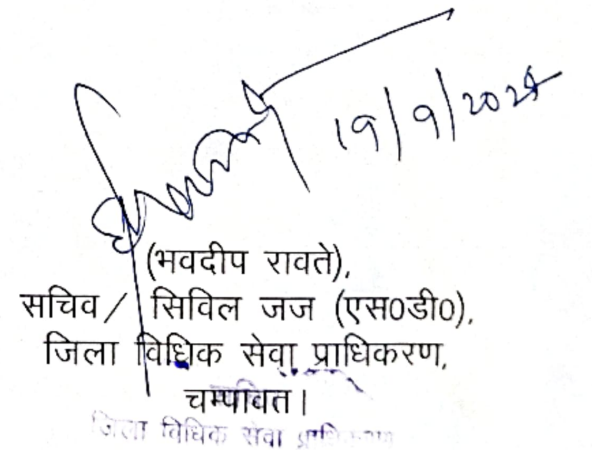 19/9/2025
(भवदीप रावते),
सचिव/ सिविल जज (एस0डी0),
जिला विधिक सेवा प्राधिकरण,
चम्पावत।
जिला विधिक सेवा प्राधिकरण